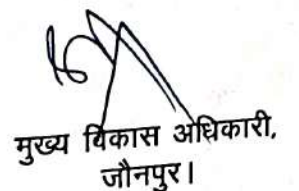 मुख्य विकास अधिकारी,
जौनपुर।